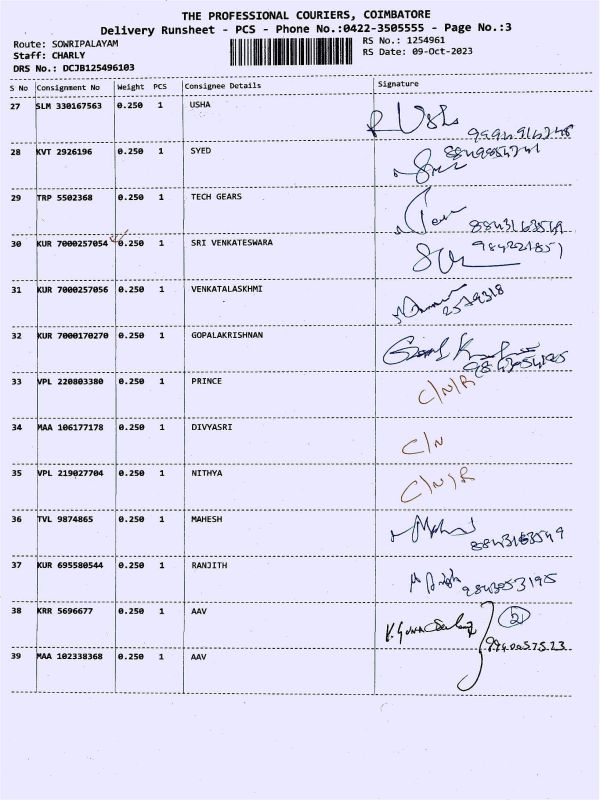 THE PROFESSIONAL COURIERS, COIMBATORE
Delivery Runsheet - PCS - Phone No.:0422-3505555 - Page No.:3
Route: SOWRIPALAYAM RS No.: 1254961
Staff: CHARLY RS Date: 09-Oct-2023
DRS No.: DCJB125496103
S No Consignment No Weight PCS Consignee Details Signature
27 SLM 330167563 0.250 1 USHA
28 KVT 2926196 0.250 1 SYED
29 TRP 5502368 0.250 1 TECH GEARS
8843163549
30 KUR 7000257054 0.250 1 SRI VENKATESWARA
31 KUR 7000257056 0.250 1 VENKATALASKHMI
2579318
32 KUR 7000170270 0.250 1 GOPALAKRISHNAN
33 VPL 220803380 0.250 1 PRINCE C/N/R
34 MAA 106177178 0.250 1 DIVYASRI C/N
35 VPL 219027704 0.250 1 NITHYA C/N/R
36 TVL 9874865 0.250 1 MAHESH
8843163549
37 KUR 695580544 0.250 1 RANJITH
9843053195
38 KRR 5696677 0.250 1 AAV 2
9940057523
39 MAA 102338368 0.250 1 AAV